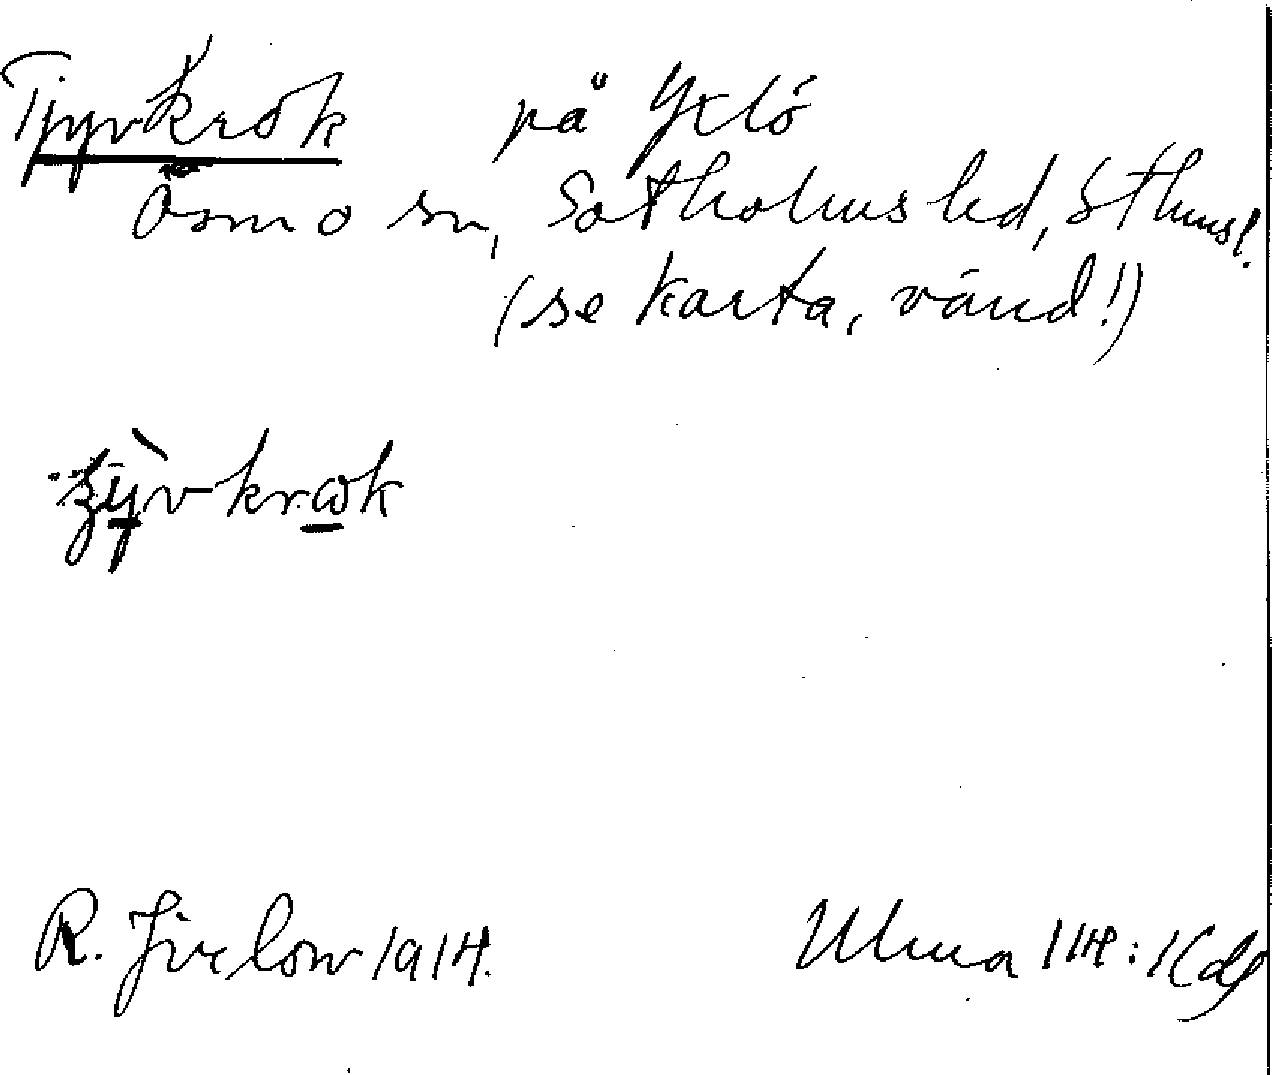 Tjyvkrok på Yxlö
Ösmo sn, Sotholms hd, Sthmsl.
(se karta, vänd!)
R. Jirlow 1914.
Ulma 114: